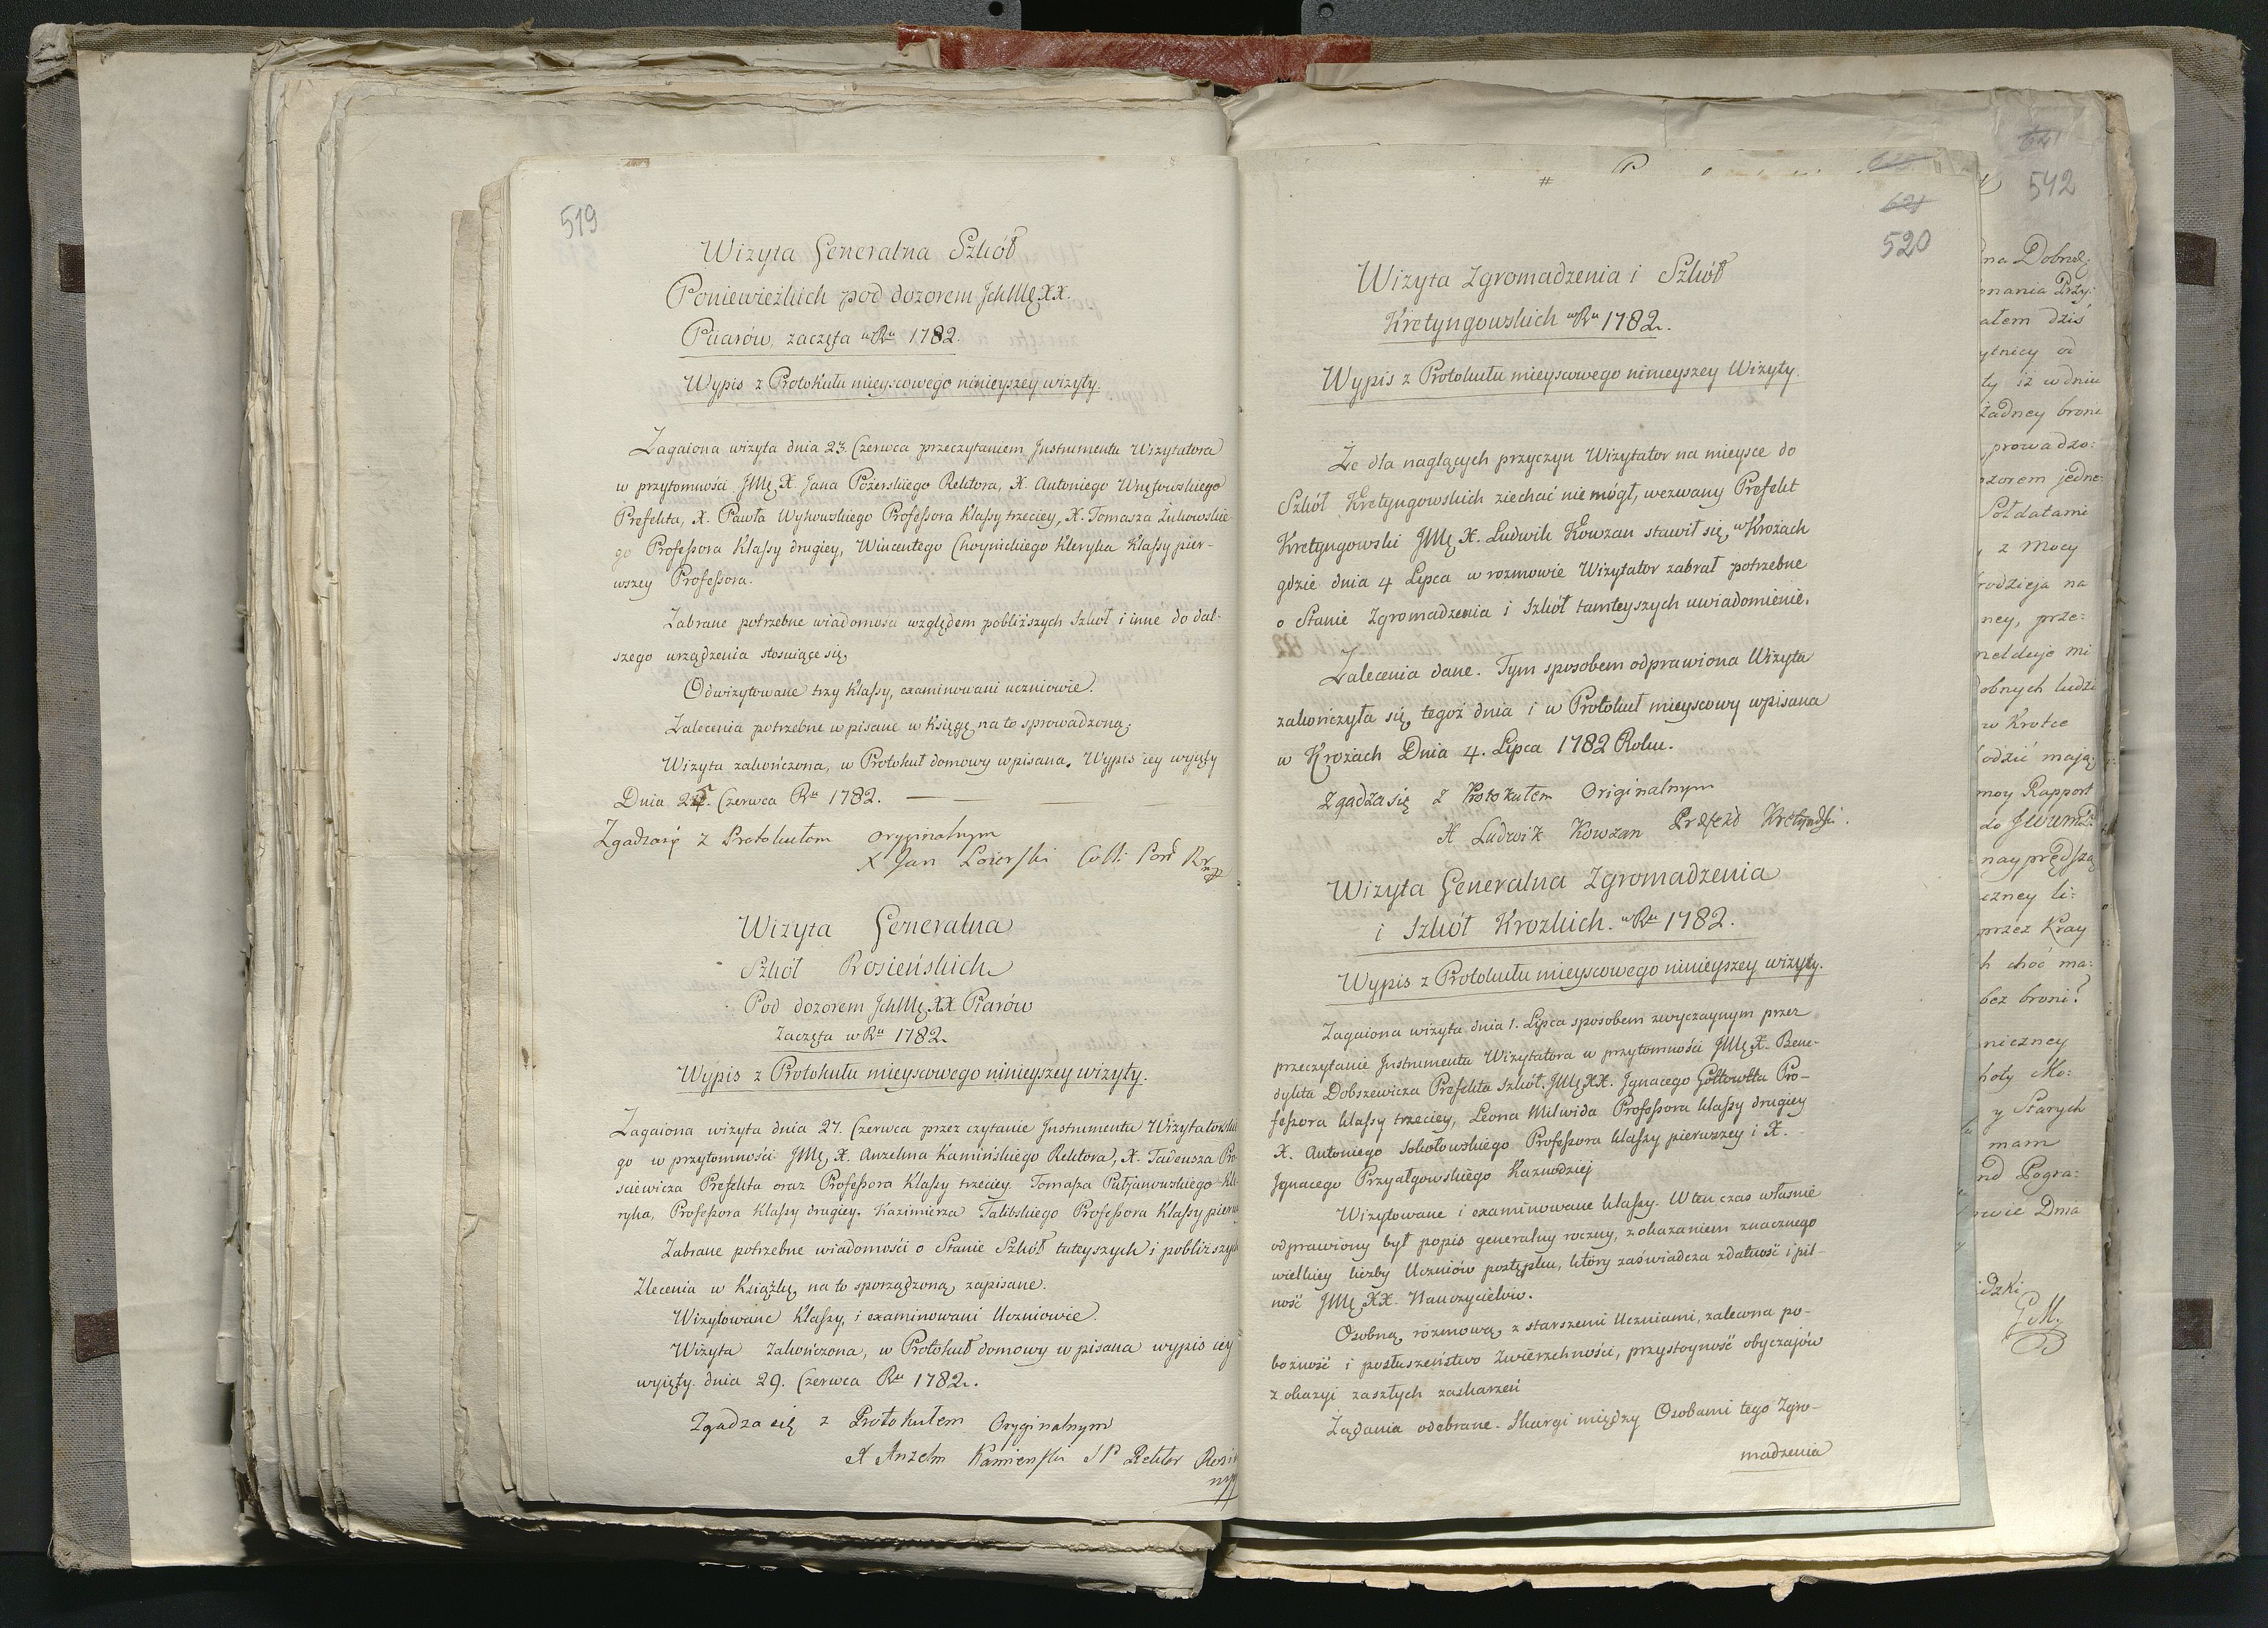 519
Wizyta Generalna Szkół
Poniewiezkich pod dozorem JchMę XX.
Piiarów, zaczęta w Ru 1782.
Wypis z Protokułu mieyscowego ninieyszey wizyty.
Zagaiona wizyta dnia 23. Czerwca przeczytaniem Jnstrumentu Wizytatora
w przytomności JMę X. Jana Pożerskiego Rektora, X. Antoniego
Prefekta, X. Pawła Wykowskiego Professora Klassy trzeciey, X. Tomasza Żukowskie
go Professora Klassy drugiey, Wincentego Choynickiego Kleryka Klassy pier-
wszey Professora.
Zabrane potrzebne wiadomości względem pobliższych Szkół i inne do dal-
szego urządzenia stosuiące się
Odwizytowane trzy Klassy, examinowani uczniowie.
Zalecenia potrzebne wpisane w Księgę na to sprowadzoną.
Wizyta zakończona, w Protokuł domowy wpisana. Wypis iey wyięty
Dnia Czerwca Ru 1782.
Zgadza się z Protokułem oryginalnym
X Jan
Wizyta Generalna
Szkół Rosieńskich
Pod dozorem JchMę XX. Piarów
Zaczęta w Ru 1782.
Wypis z Protokułu mieyscowego ninieyszey wizyty.
Zagaiona wizyta dnia 27. Czerwca przez czytanie Jnstrumentu Wizytatorskie
go w przytomności JMę X. Anzelma Kamińskiego Rektora, X. Tadeusza Pro
sciewicza Prefekta oraz Professora Klassy trzeciey. Tomasza Kle
ryka, Professora Klassy drugiey. Kazimierza Talibskiego Professora Klassy pierw
Zabrane potrzebne wiadomości o Stanie Szkół tuteyszych i pobliższych
Zlecenia w Książkę na to sporządzoną zapisane.
Wizytowane Klassy, i examinowani Uczniowie.
Wizyta zakończona, w Protokuł domowy wpisana wypis iey
wyięty. dnia 29. Czerwca Ru 1782.
Zgadza się z Protokułem Oryginalnym
X Anzelm Kamienski SP Rektor
520
Wizyta Zgromadzenia i Szkół
Kretyngowskich w Ru 1782.
Wypis z Protokułu mieyscowego ninieyszey Wizyty.
Że dla naglących przyczyn Wizytator na mieysce do
Szkół Kretyngowskich ziechać nie mógł, wezwany Prefekt
Kretyngowski JMę X. Ludwik Kowzan stawił się w Krożach
gdzie dnia 4 Lipca w rozmowie Wizytator zabrał potrzebne
o Stanie Zgromadzenia i Szkół tamteyszych uwiadomienie.
Zalecenia dane. Tym sposobem odprawiona Wizyta
zakończyła się tegoż dnia i w Protokuł mieyscowy wpisana
w Krożach Dnia 4. Lipca 1782 Roku.
Zgadza się z Protokułem Originalnym
X Ludwik Kowzan Prefekt
Wizyta Generalna Zgromadzenia
i Szkół Krozkich. w Ru 1782.
Wypis z Protokułu mieyscowego ninieyszey wizyty.
Zagaiona wizyta dnia 1. Lipca sposobem zwyczaynym przez
przeczytanie Jnstrumentu Wizytatora w przytomności JMę X. Bene-
dykta Dobszewicza Prefekta Szkół. JMę XX. Jgnacego Gółtowtta Pro-
fessora klassy trzeciey, Leona Milwida Professora klassy drugiey
X. Antoniego Sokołowskiego Professora klassy pierwszey i X.
Jgnacego Przyałgowskiego Kaznodziej
Wizytowane i examinowane klassy. W ten czas własnie
odprawiony był popis generalny roczny, z okazaniem znacznego
wielkiey liczby Uczniów postępku, który zaświadcza zdatność i pil-
ność JMę XX. Nauczycielów.
Osobną rozmową z starszemi Uczniami, zalecona po-
bożność i posłuszeństwo Zwierzchności, przystoyność obyczajów
z okazyi zaszłych zaskarżeń
Żądania odebrane. Skargi między Osobami tego Zgro-
madzenia
542
na Dobrod:
onania Przy:
ałem dziś
ytnicy od
ty iż w dniu
żadney broni
prowadzo:
ozorem jedne:
Sołdatami
z Mocy
rodzieja na
ney, prze:
melduje mi
obnych ludzi
w Krotce
odzić mają
moy Rapport
nayprędszą
czney li:
przez Kray
h choć ma:
bez broni?
niczney
hoty Mo:
y Starych
mam
nd Pogra:
Dnia
idzki
GM.